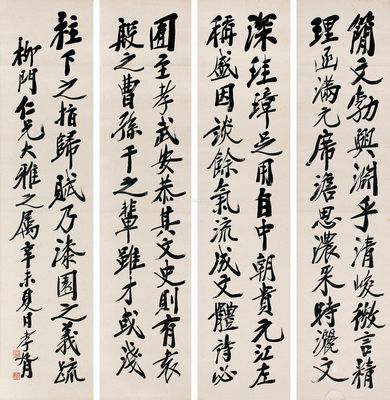 簡文勃興淵乎清峻微言精
理函滿元席澹思濃采時灑文
深珪璋足用自中朝貴元江左
稱盛因談餘氣流成文體詩必
囿至孝武安恭其文史則有袁
殷之曹孫干之輩雖才或淺
柱下之指歸賦乃漆園之義疏
柳門仁兄大雅之属辛未夏日孝胥